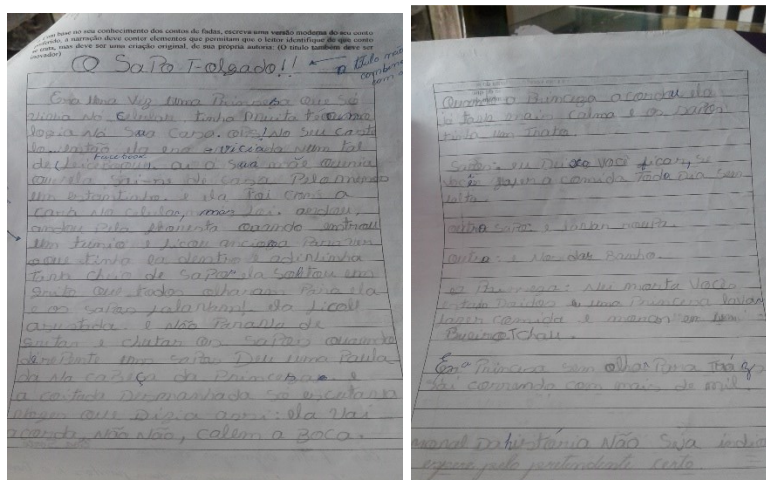 Com base no seu conhecimento dos contos de fadas, escreva uma versão moderna do seu conto
preferido, a narração deve conter elementos que permitam que o leitor identifique de que conto
se trata, mas deve ser uma criação original, de sua própria autoria: (O título também deve ser
inovador)
O Sapo Folgado!!
O título não
combina
com o
Era uma vez uma Princesa que só
vivia no celular, tinha muita tecno
logia na Sua Casa. no Seu
então ela era viciada num tal
de Facebook, a Sua mãe queria
que ela Saisse de casa Pelo menos
um e ela Foi Com a
cara no celular, mas foi. andou,
andou pela floresta quando entrou
um e ficou anciosa Para ver
o que tinha la dentro e adivinha
tava cheio de Sapos ela Soltou um
grito que todos olharam Para ela
e os Sapos ela ficou
asustada e Não Parava de
gritar e chutar os Sapos quando
derepente um sapo Deu uma Paula
da na cabeça da Princesa e
a coitada Desmanhada So escutava
que Dizia assim: ela Vai
acorda, Não Não, calem a Boca.
Quando a Princesa acordou ela
já tava mais calma e os Sapos
tinha um Trato.
Sapos: eu Deixo Você ficar, se
você fazer a comida Todo Dia Sem
outro Sapo: e lavar roupa.
outro: e Nos dar Banho.
Princesa: Vocês
uma Princesa lavar
fazer comida e morar em um
Bueiro Tchau.
E a Princesa sem olhar Para Trás
Sai correndo com mais de mil.
moral Da história Não Seja
espere pelo pretendente certo.